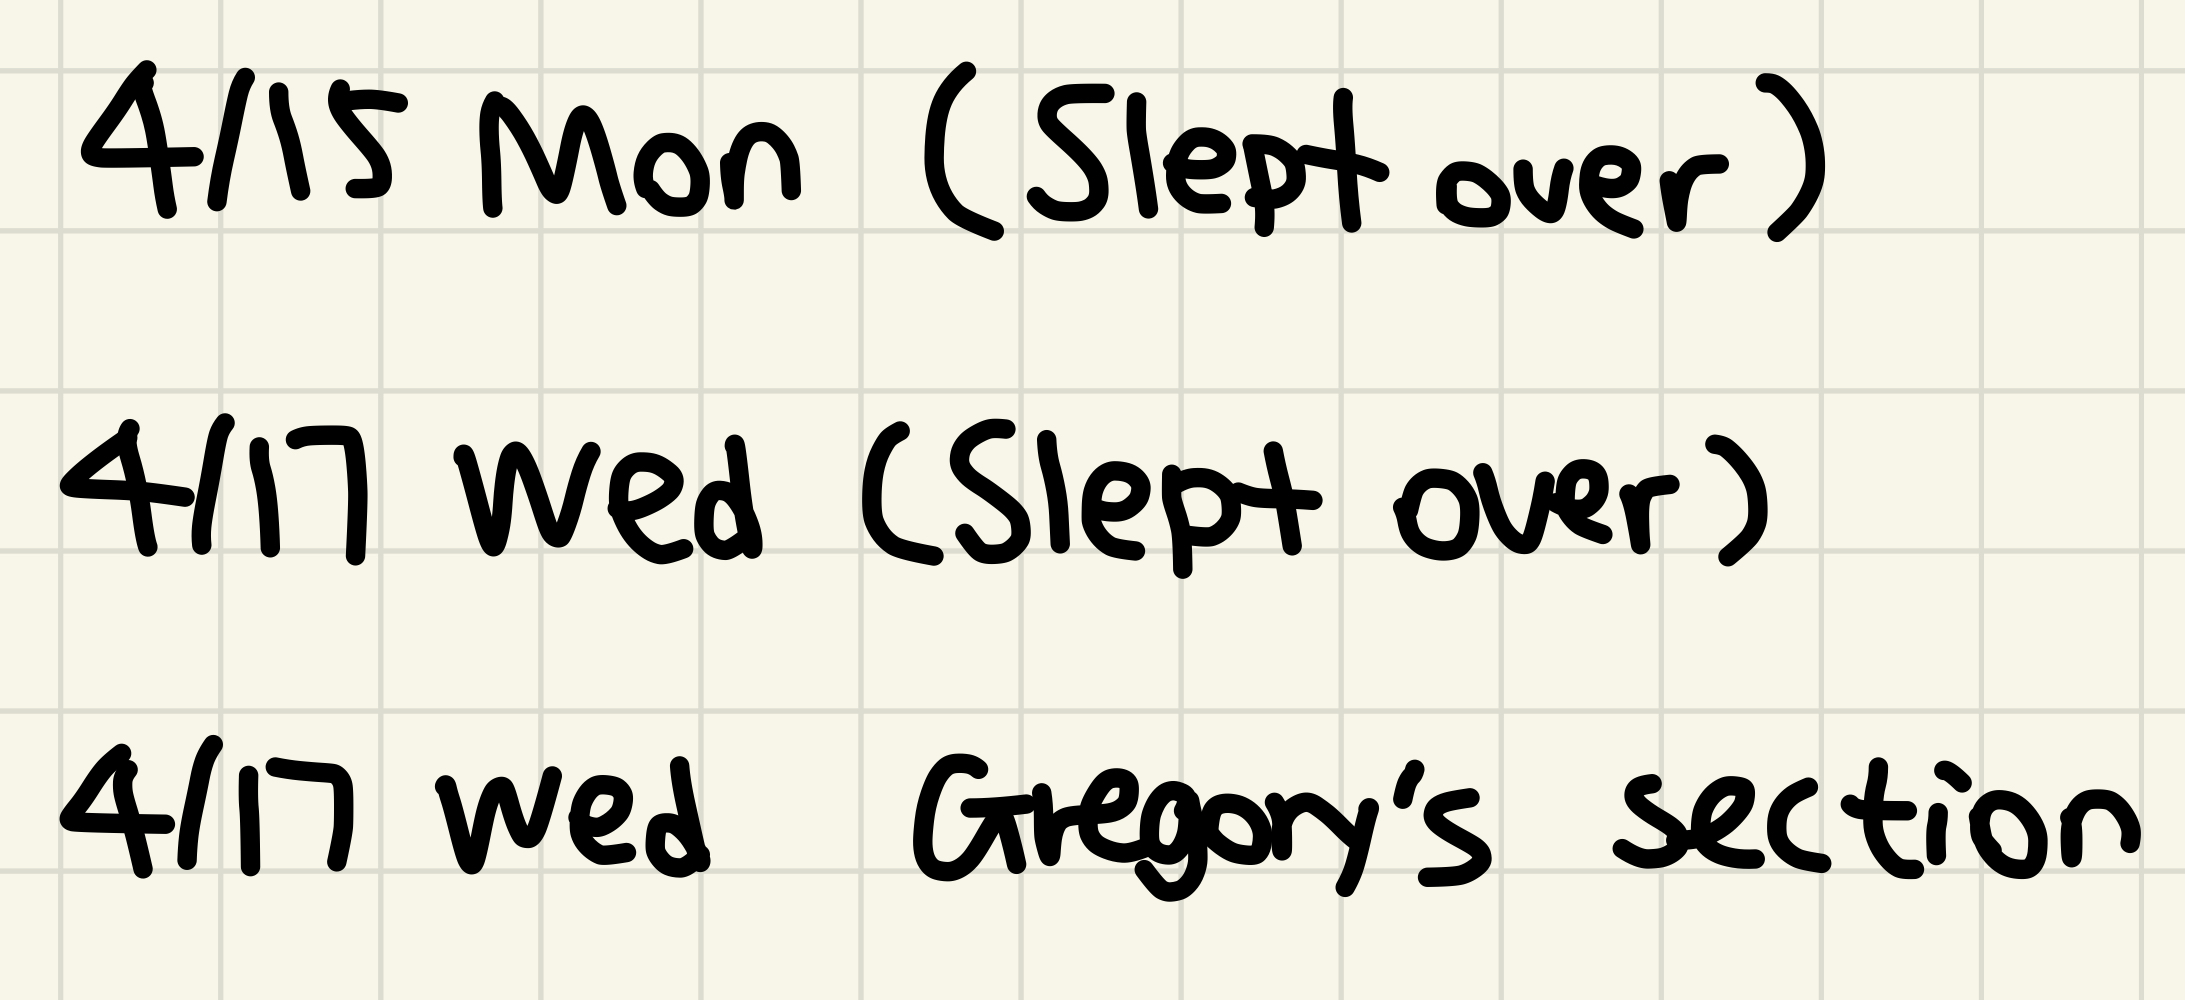 4/15 Mon (Slept over)
4/17 Wed (Slept over)
4/17 Wed Gregory's section